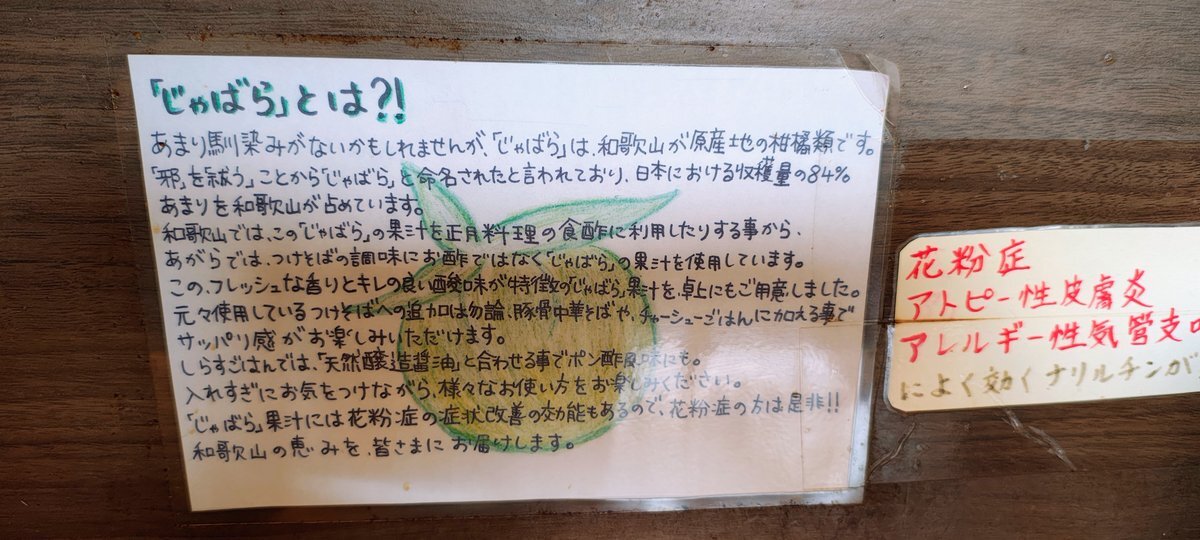 「じゃばら」とは?!
あまり馴染みがないかもしれませんが、「じゃばら」は、和歌山が原産地の柑橘類です。
「邪」を祓う」ことから「じゃばら」と命名されたと言われており、日本における収穫量の84%
あまりを和歌山が占めています。
和歌山では、この「じゃばら」の果汁を正月料理の食酢に利用したりする事から、
あがらでは、つけそばの調味にお酢ではなく「じゃばら」の果汁を使用しています。
この、フレッシュな香りとキレの良い酸味が特徴の「じゃばら」果汁を、卓上にもご用意しました。
元々使用しているつけそばへの追加は勿論、豚骨中華そばや、チャーシューごはんに加える事で
サッパリ感がお楽しみいただけます。
しらすごはんでは、「天然醸造醤油」と合わせる事でポン酢風味にも。
入れすぎにお気をつけながら、様々なお使い方をお楽しみください。
「じゃばら」果汁には花粉症の症状改善の効能もあるので、花粉症の方は是非!!
和歌山の恵みを、皆さまにお届けします。
花粉症
アトピー性皮膚炎
アレルギー性気管支
によく効くナリルチンが